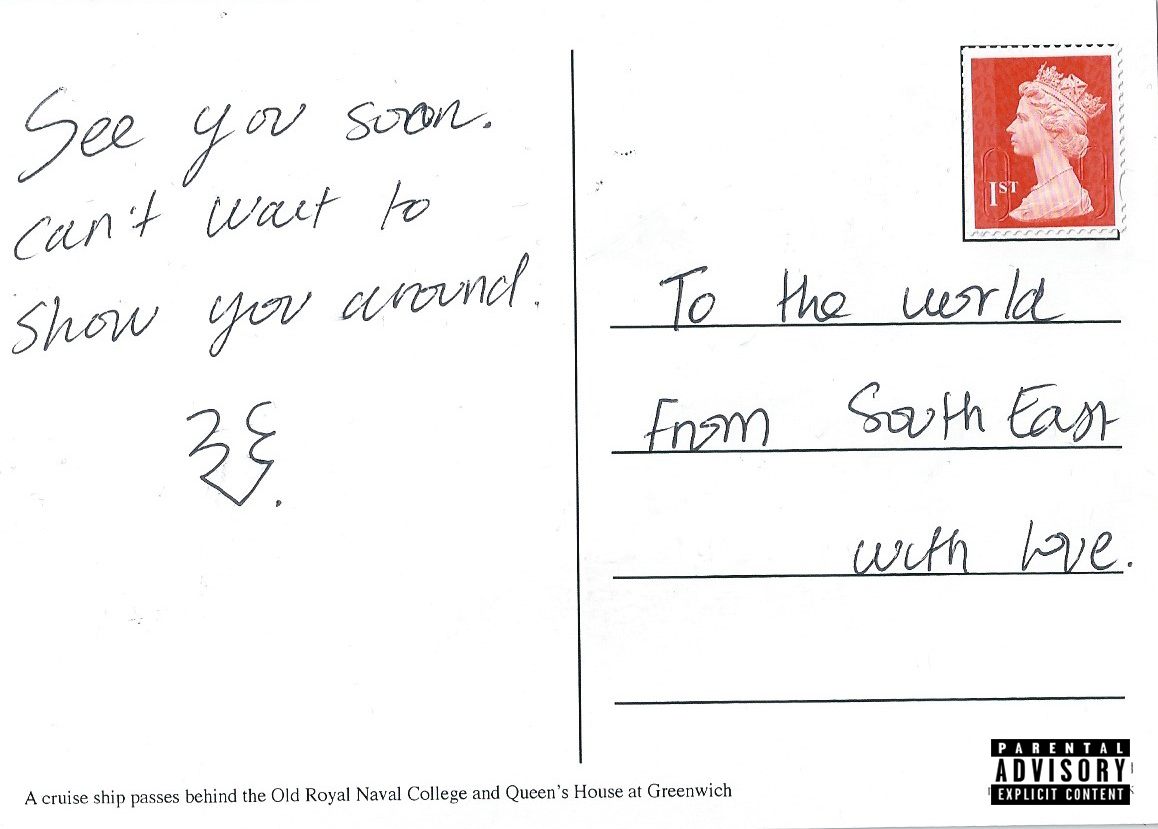 See you soon.
can't wait to
show you around.
1ST
To the world
From South East
with love.
A cruise ship passes behind the Old Royal Naval College and Queen's House at Greenwich
PARENTAL
ADVISORY
EXPLICIT CONTENT